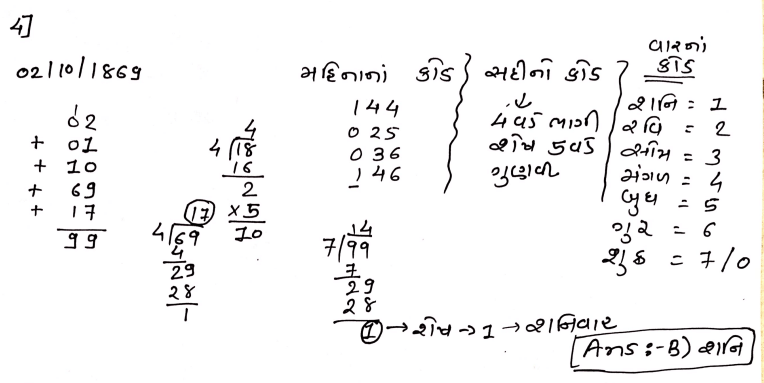 4]
02/10/1869
1
02
+ 01
+ 10
+ 69
+ 17
99
4
4 18
16
2
×5
10
17
4 69
4
29
28
1
મહિનાનાં કોડ
144
025
036
146
14
7 99
7
29
28
1 → શેષ → 1 → શનિવાર
સદીનો કોડ
↓
4 વડે ભાગી
શેષ 5 વડે
ગુણવી
વારનાં
કોડ
શનિ = 1
રવિ = 2
સોમ = 3
મંગળ = 4
બુધ = 5
ગુરુ = 6
શુક્ર = 7/0
Ans :- B) શનિ